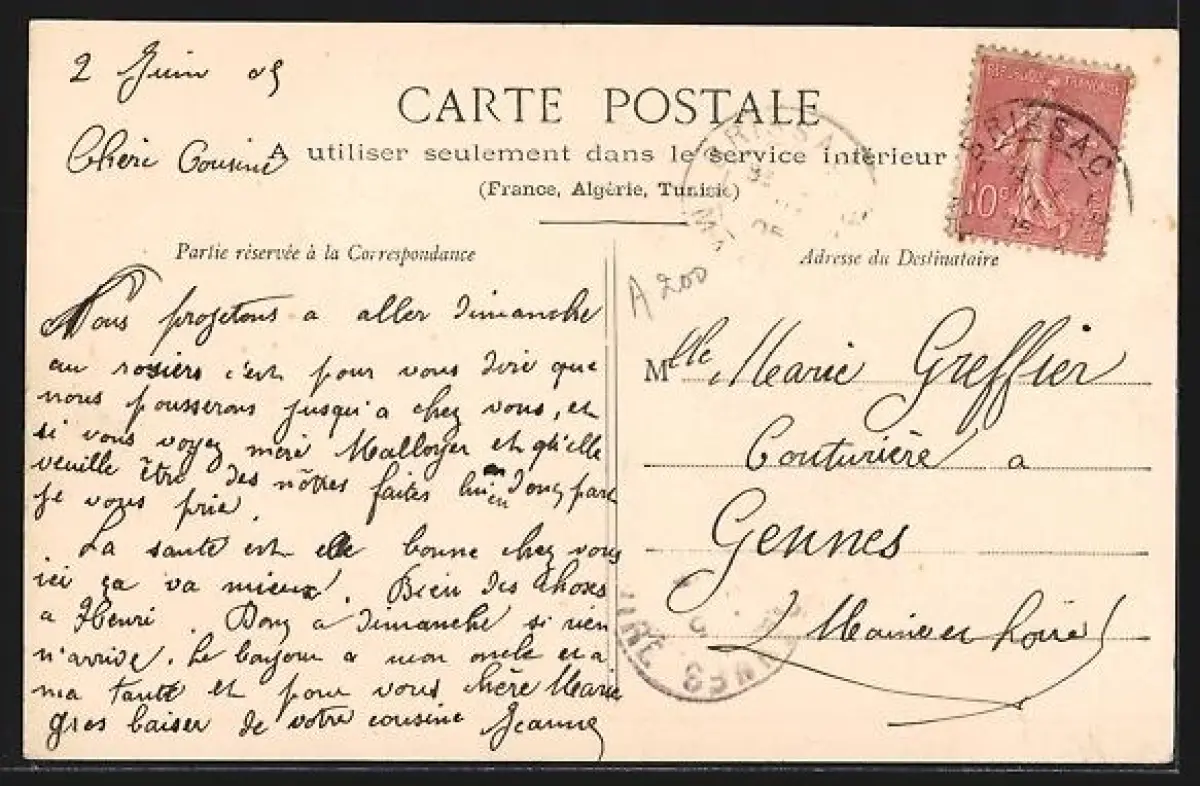 2 Juin 05
CARTE POSTALE
Chère Cousine
A utiliser seulement dans le service intérieur
(France, Algérie, Tunisie)
Partie réservée à la Correspondance
Adresse du Destinataire
A 200
Nous projetons a aller dimanche
au rosiers c'est pour vous dire que
nous pousserons jusqu'a chez vous, et
si vous voyez mère Malloyer et qu'elle
veuille être des nôtres faites lui en donc part
je vous prie.
La santé est elle bonne chez vous
ici ça va mieux. Bien des choses
a Henri. Donc a dimanche si rien
n'arrive. Le bonjour a mon oncle et a
ma tante et pour vous chère Marie
gros baiser de votre cousine Jeanne
Mlle Marie Greffier
Couturière a
Gennes
Maine et Loire
REPUBLIQUE FRANÇAISE
10c
BRISSAC